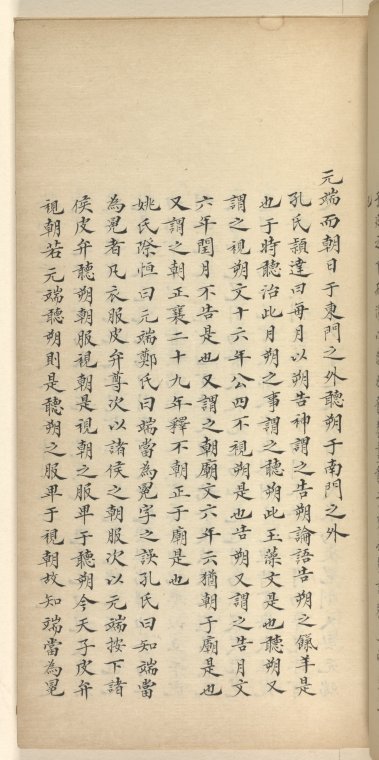 元端而朝日于東門之外聽朔于南門之外
孔氏頴達曰每月以朔告神謂之告朔論語告朔之餼羊是
也于時聽治此月朔之事謂之聽朔此玉藻文是也聽朔又
謂之視朔文十六年公四不視朔是也告朔又謂之告月文
六年閏月不告是也又謂之朝廟文六年云猶朝于廟是也
又謂之朝正襄二十九年釋不朝正于廟是也
姚氏際恒曰元端鄭氏曰端當為冕字之誤孔氏曰知端當
為冕者凡衣服皮弁尊次以諸侯之朝服次以元端按下諸
侯皮弁聽朔朝服視朝是視朝之服畢于聽朔今天子皮弁
視朝若元端聽朔則是聽朔之服畢于視朝故知端當為冕